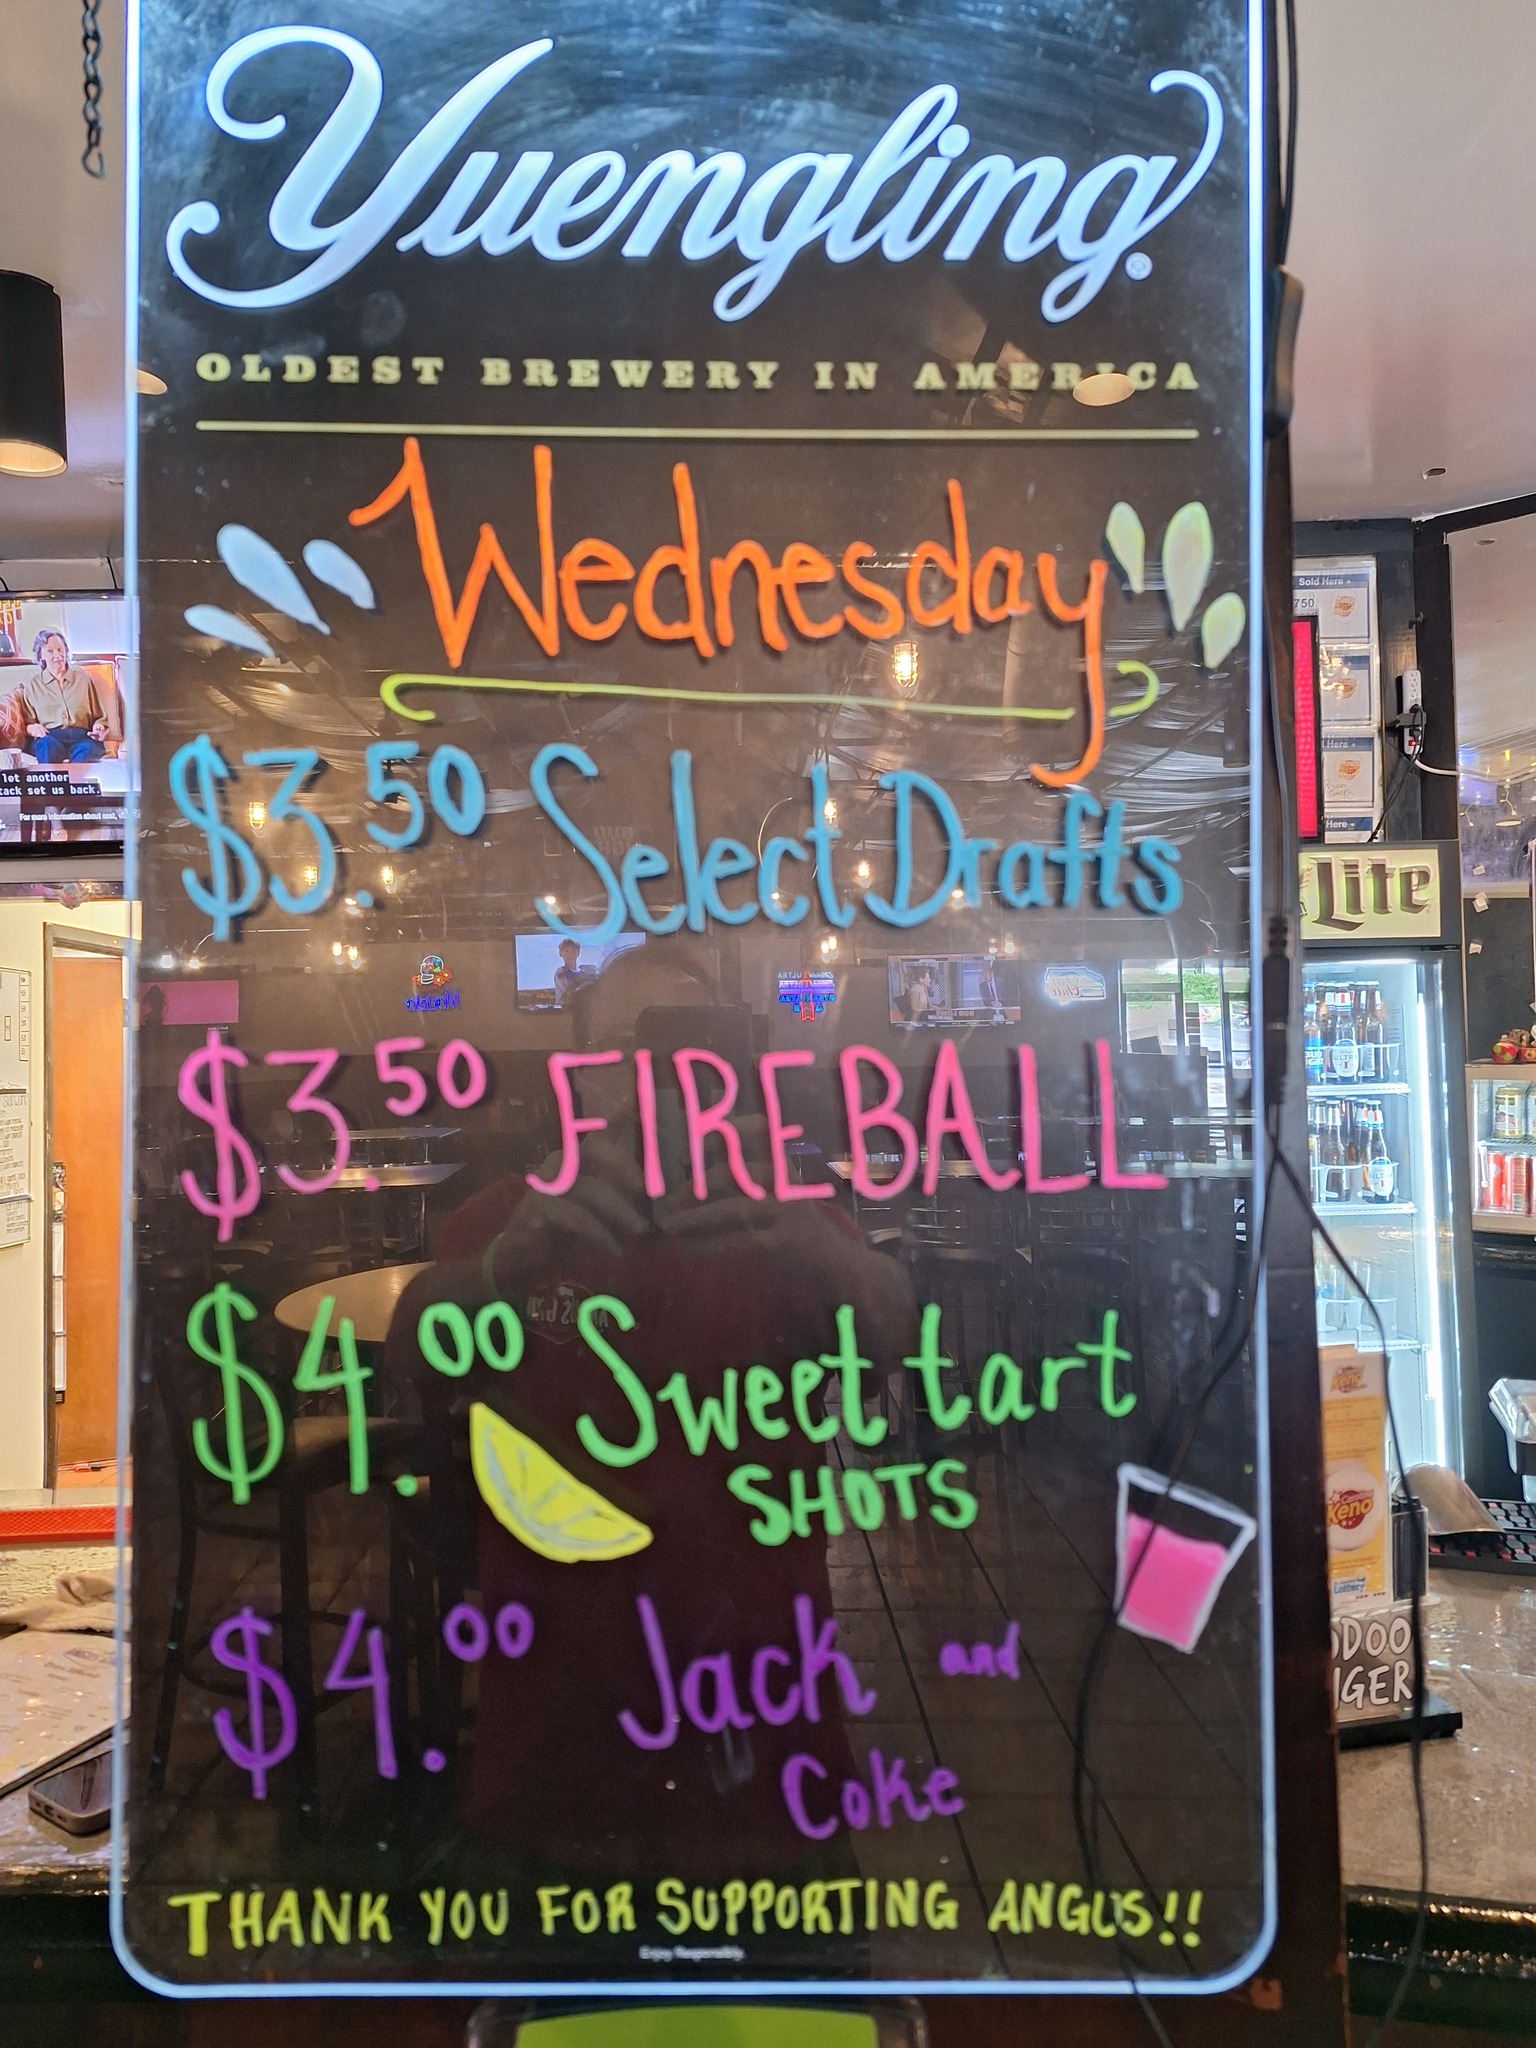 Yuengling®
OLDEST BREWERY IN AMERICA
Wednesday
$3.50 Select Drafts
$3.50 FIREBALL
$4.00 Sweet tart
SHOTS
$4.00 Jack and
Coke
THANK YOU FOR SUPPORTING ANGUS!!
Enjoy Responsibly.
let another
set us back.
Sold Here
750
Here
Here
Lite
Keno
Keno
Lottery